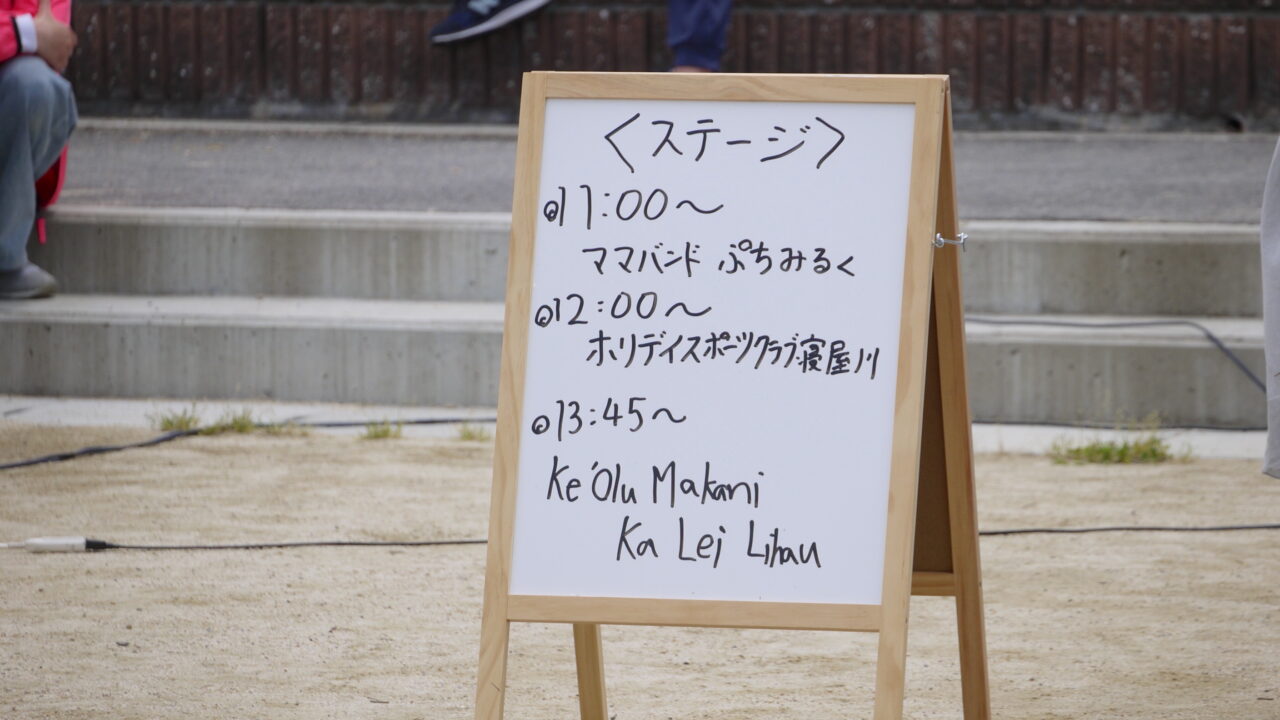 〈ステージ〉
◎11:00〜
ママバンド ぷちみるく
◎12:00〜
ホリデイスポーツクラブ寝屋川
◎13:45〜
Ke'Olu Makani
Ka Lei Lihau